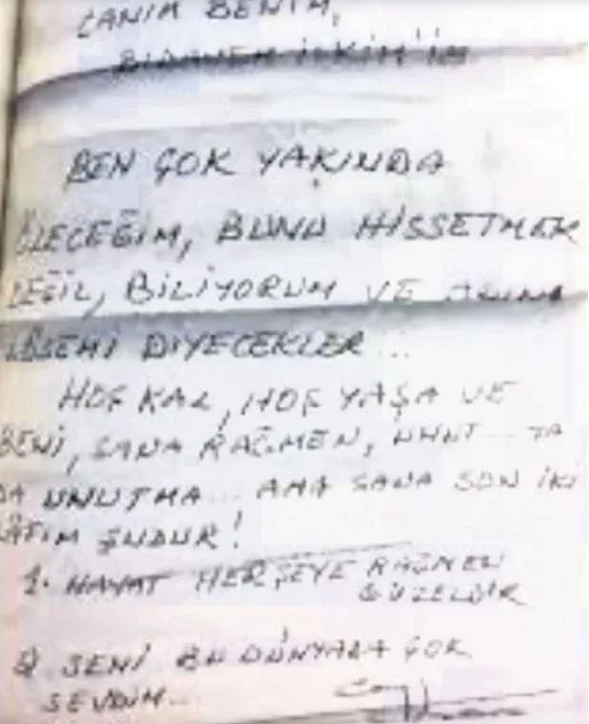 CANIM BENİM,
BİRANEM İLKİM'İM
BEN ÇOK YAKINDA
ÖLECEĞİM, BUNU HİSSETMEK
DEĞİL, BİLİYORUM VE
DİYECEKLER...
HOŞ KAL, HOŞ YAŞA VE
BENİ, SANA RAĞMEN, UNUT... YA
DA UNUTMA... AMA SANA SON İKİ
LAFIM ŞUDUR!
1. HAYAT HERŞEYE RAĞMEN
GÜZELDİR
2 SENİ BU DÜNYADA ÇOK
SEVDİM...